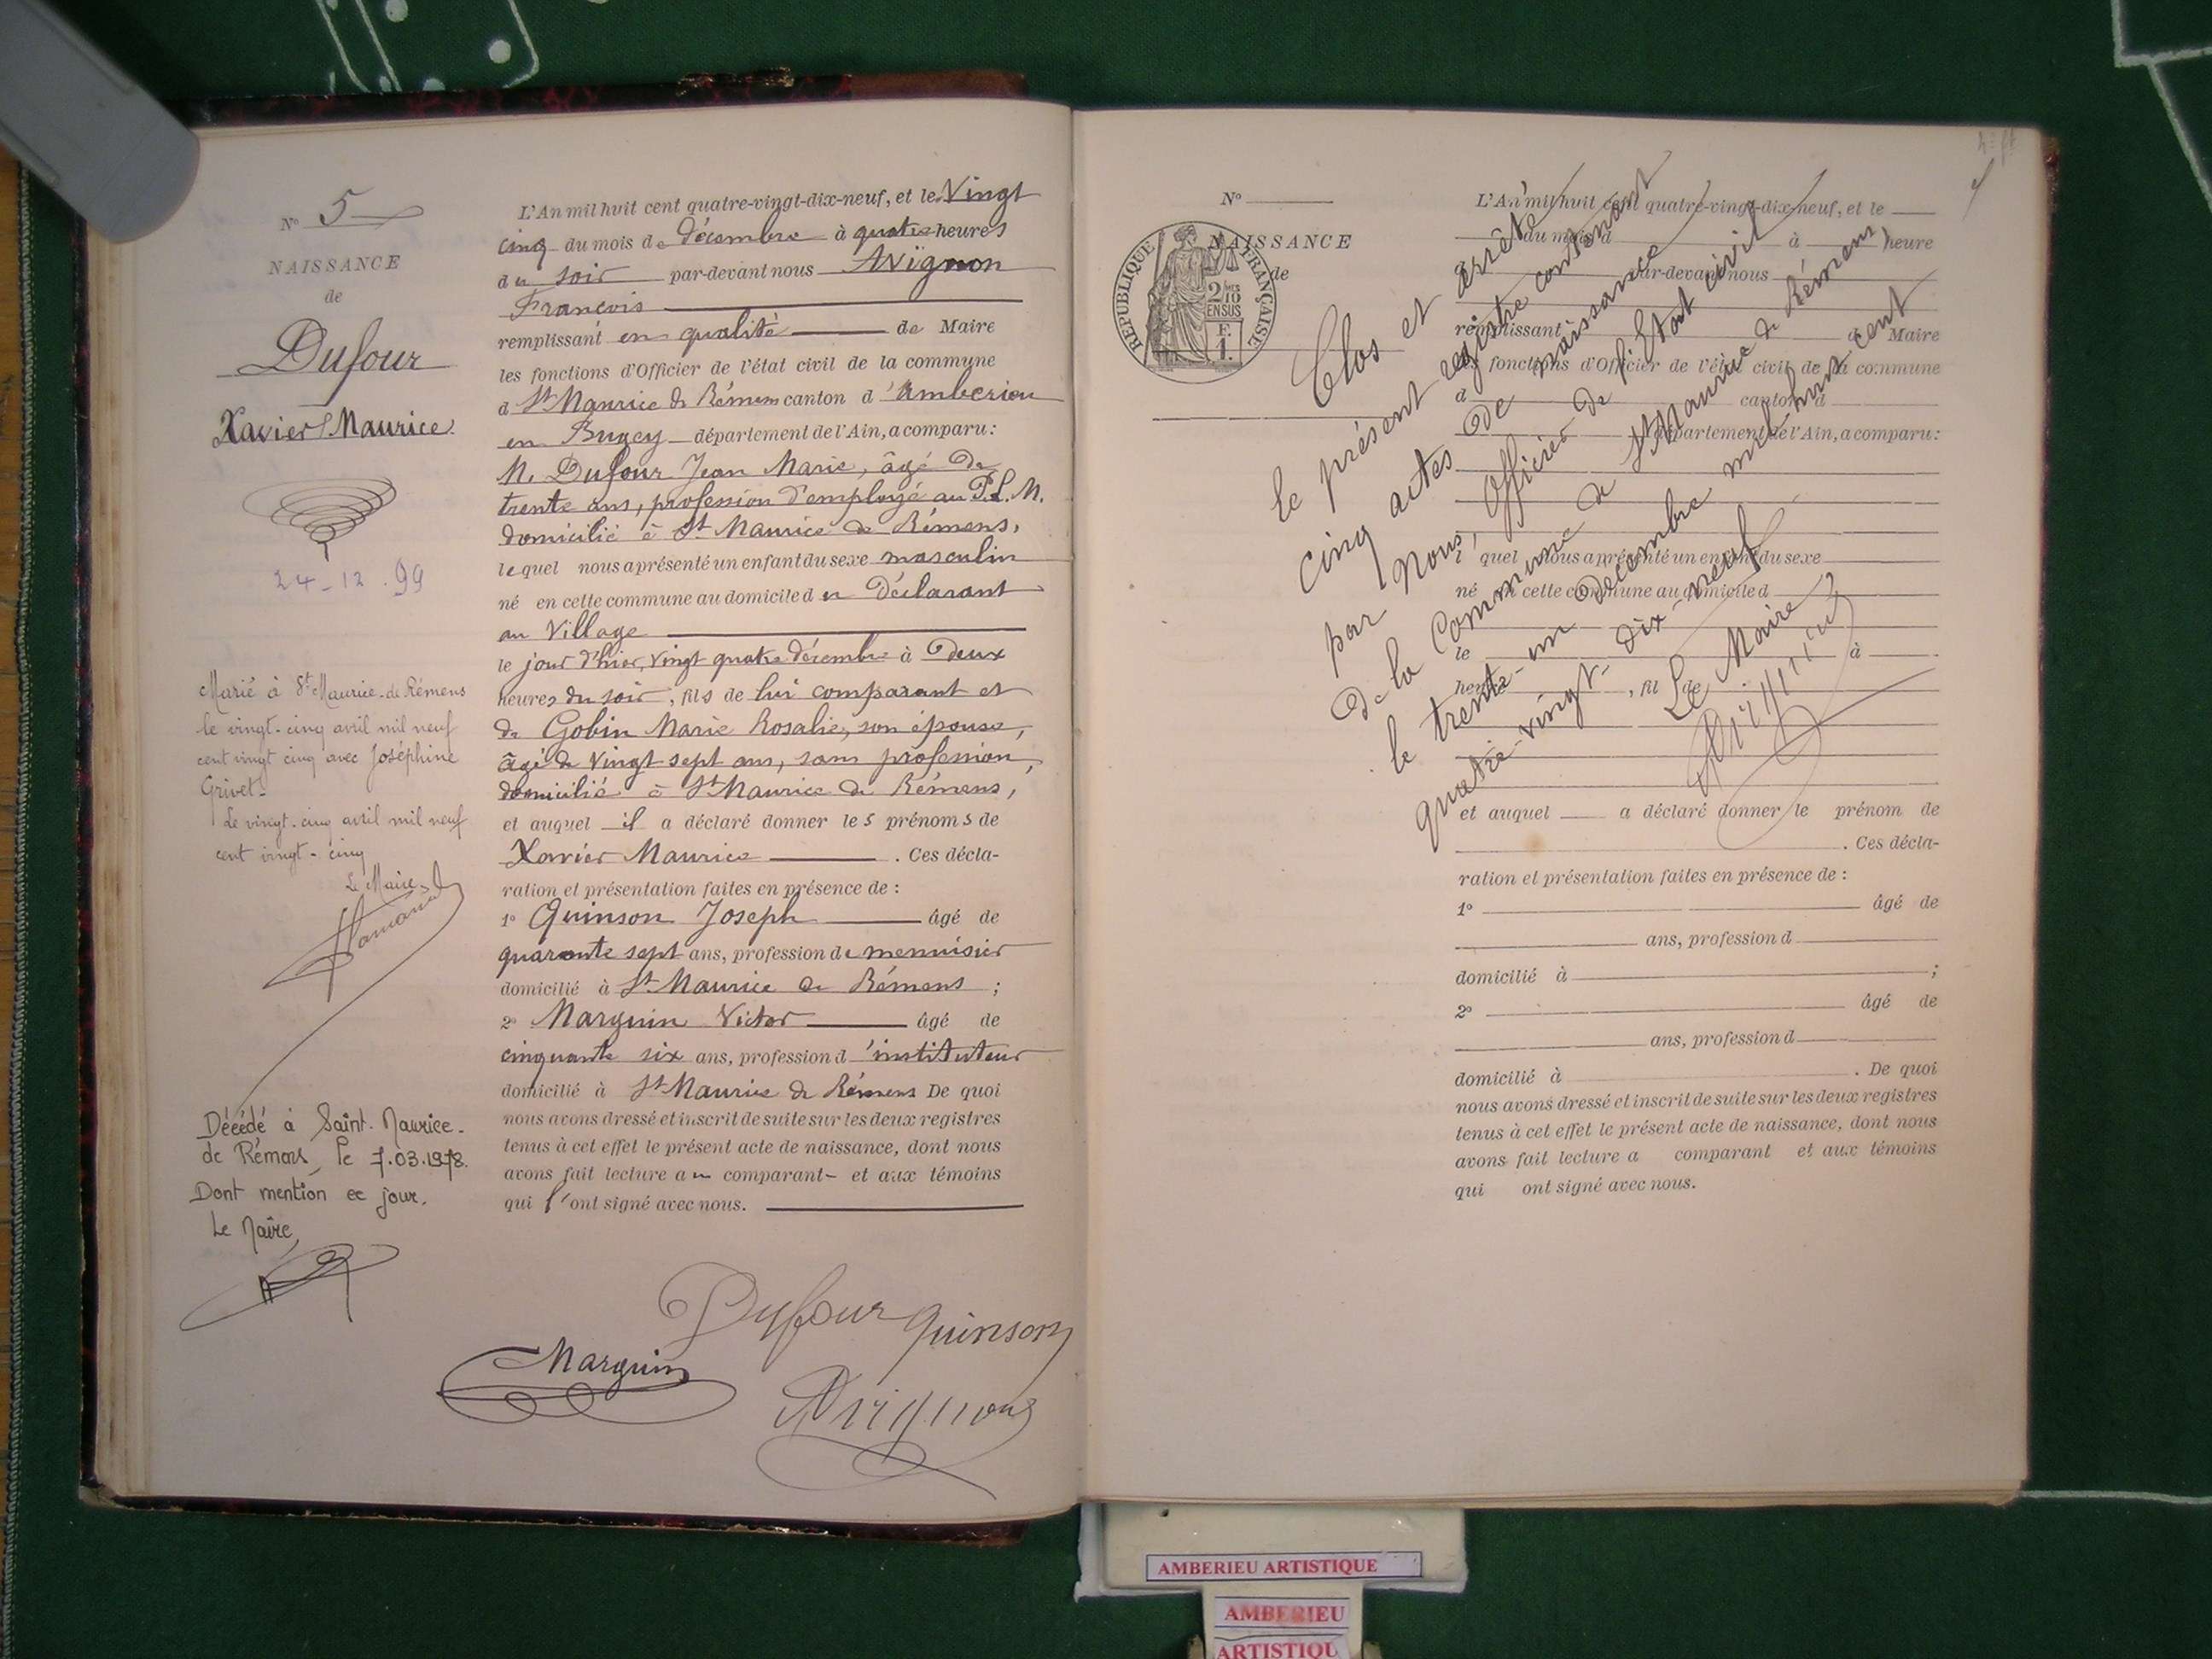 N° 5
NAISSANCE
de
Dufour
Xavier Maurice
24-12.99
Marié à St Maurice-de-Rémens
le vingt-cinq avril mil neuf
cent vingt cinq avec Joséphine
Grivet.
Le vingt-cinq avril mil neuf
cent vingt-cinq
Le Maire
Décédé à Saint-Maurice-
de Rémens, le 7.03.1978.
Dont mention ce jour.
Le Maire,
L'An mil huit cent quatre-vingt-dix-neuf, et le Vingt
cinq du mois de décembre à quatre heures
du soir par-devant nous Avignon
François
remplissant en qualité de Maire
les fonctions d'Officier de l'état civil de la commune
d St Maurice de Rémens canton d'Ambérieu
en Bugey département de l'Ain, a comparu :
M. Dufour Jean Marie, âgé de
trente ans, profession d'employé au P.L.M.
domicilié à St Maurice de Rémens,
lequel nous a présenté un enfant du sexe masculin
né en cette commune au domicile du Déclarant
au Village
le jour d'hier, vingt quatre décembre à Deux
heures du soir, fils de lui comparant et
de Gobin Marie Rosalie, son épouse,
âgé de vingt sept ans, sans profession,
domicilié à St Maurice de Rémens,
et auquel il a déclaré donner les prénoms de
Xavier Maurice . Ces décla-
ration et présentation faites en présence de :
1° Quinson Joseph âgé de
quarante sept ans, profession de menuisier
domicilié à St Maurice de Rémens ;
2° Marguin Victor âgé de
cinquante six ans, profession d'instituteur
domicilié à St Maurice de Rémens De quoi
nous avons dressé et inscrit de suite sur les deux registres
tenus à cet effet le présent acte de naissance, dont nous
avons fait lecture au comparant et aux témoins
qui l'ont signé avec nous.
Dufour Quinson
Marguin
Avignon
N°
NAISSANCE
de
RÉPUBLIQUE FRANÇAISE
2/10
EN SUS
F.
1.
L'An mil huit cent quatre-vingt-dix-neuf, et le
du mois d à heure
par-devant nous
remplissant d Maire
les fonctions d'Officier de l'état civil de la commune
d canton d
département de l'Ain, a comparu :
l quel nous a présenté un enfant du sexe
né en cette commune au domicile d
le à
heure , fil de
et auquel a déclaré donner le prénom de
. Ces décla-
ration et présentation faites en présence de :
1° âgé de
ans, profession d
domicilié à ;
2° âgé de
ans, profession d
domicilié à . De quoi
nous avons dressé et inscrit de suite sur les deux registres
tenus à cet effet le présent acte de naissance, dont nous
avons fait lecture a comparant et aux témoins
qui ont signé avec nous.
Clos et arrêté
le présent registre contenant
cinq actes de naissance
par Nous, Officier de l'Etat civil
de la Commune de St Maurice de Rémens,
le trente-un Décembre mil huit cent
quatre-vingt-dix-neuf
Le Maire
Avignon
AMBERIEU ARTISTIQUE
AMBERIEU
ARTISTIQU